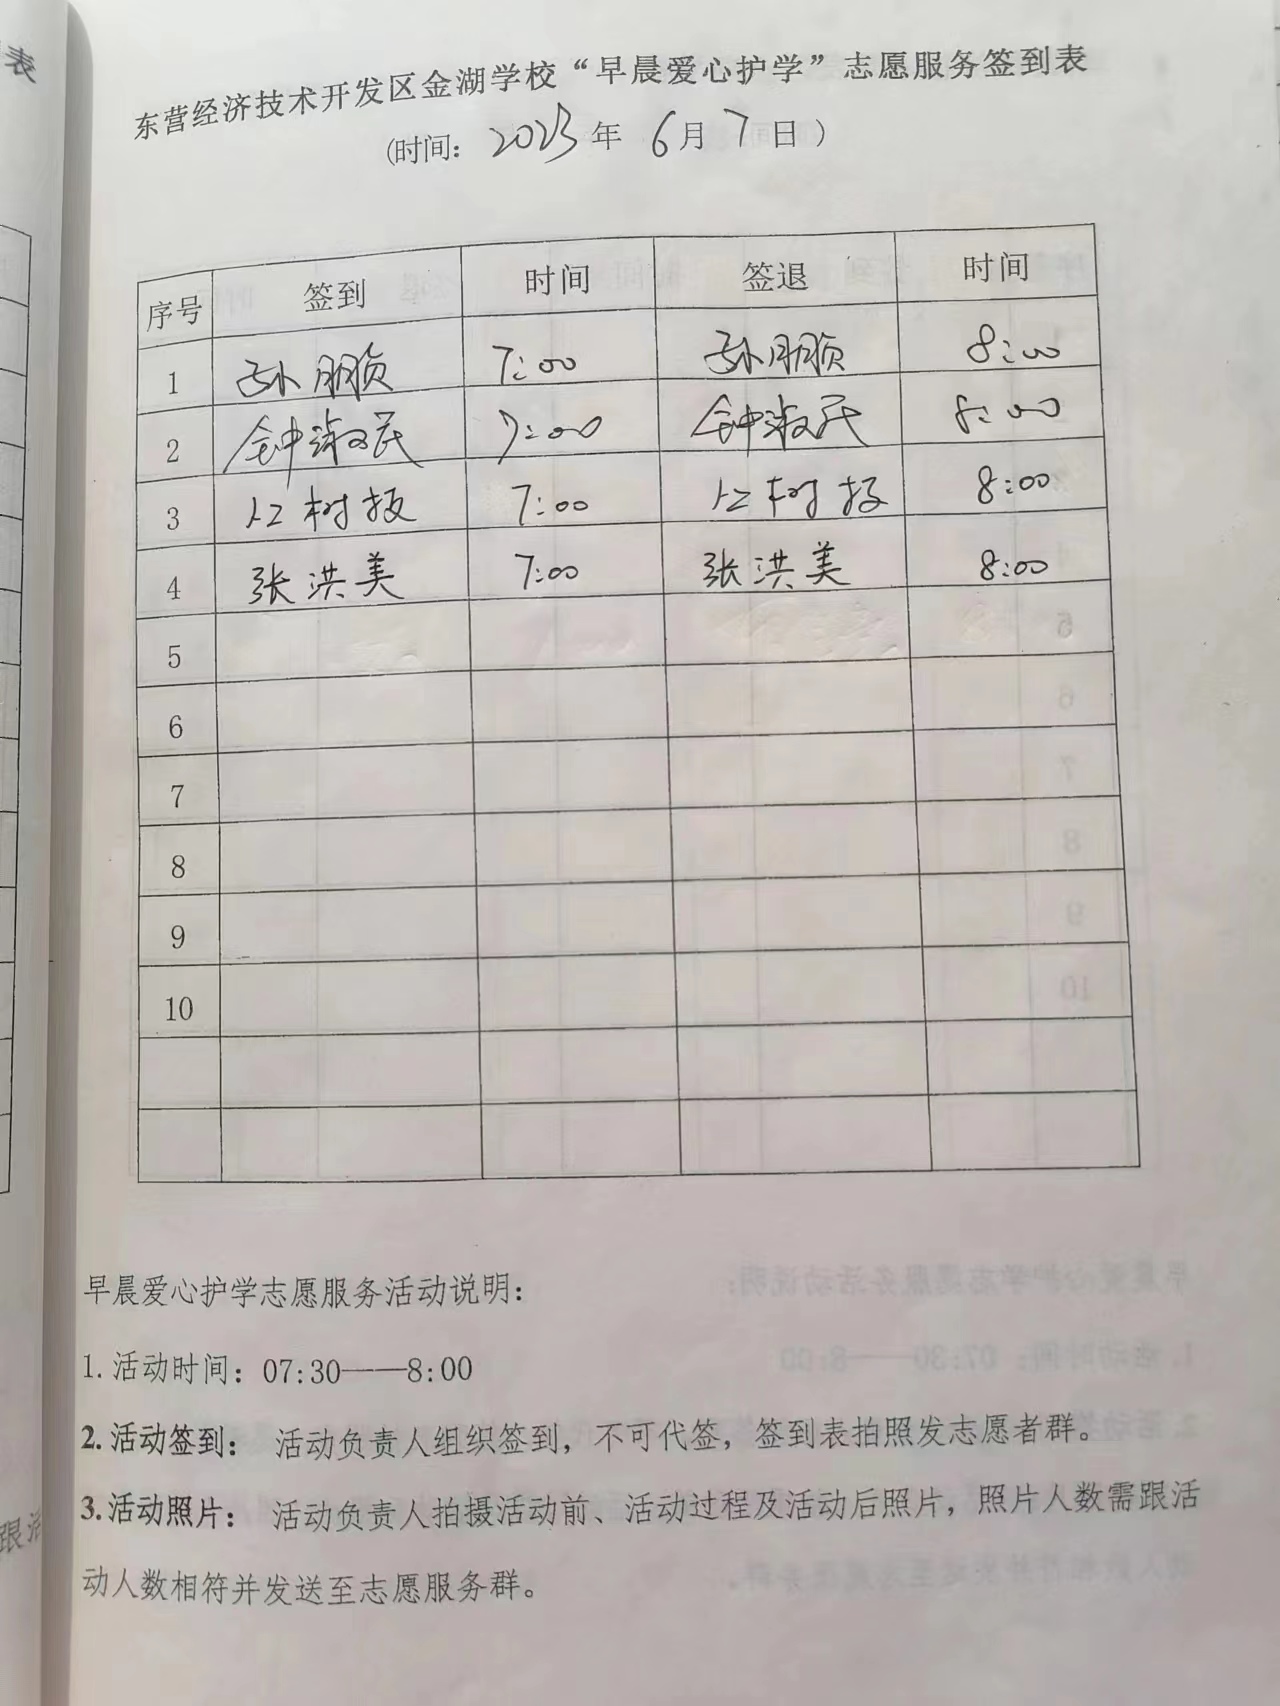 东营经济技术开发区金湖学校“早晨爱心护学”志愿服务签到表
(时间: 2023年 6月 7日)
序号 签到 时间 签退 时间
1 孙朋贞 7:00 孙朋贞 8:00
2 钟淑民 7:00 钟淑民 8:00
3 树 7:00 树 8:00
4 张洪美 7:00 张洪美 8:00
5
6
7
8
9
10
早晨爱心护学志愿服务活动说明:
1. 活动时间: 07:30——8:00
2. 活动签到: 活动负责人组织签到, 不可代签, 签到表拍照发志愿者群。
3. 活动照片: 活动负责人拍摄活动前、活动过程及活动后照片, 照片人数需跟活
动人数相符并发送至志愿服务群。